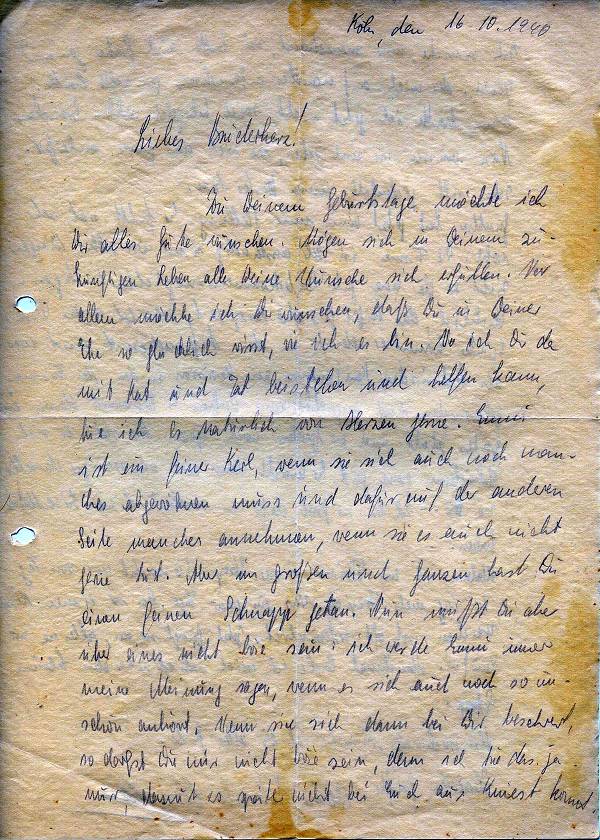 Köln, den 16.10.1940
Liebes Bruderherz!
Zu Deinem Geburtstage möchte ich
Dir alles Gute wünschen. Mögen sich in Deinem zu-
künftigen Leben alle Deine Wünsche sich erfüllen. Vor
allem möchte ich Dir wünschen, daß Du in Deiner
Ehe so glücklich wirst, wie ich es bin. Wo ich Dir da
mit Rat und Tat beistehen und helfen kann,
tue ich es natürlich von Herzen gerne. Emmi
ist ein feiner Kerl, wenn sie sich auch noch man-
ches abgewöhnen muss und dafür auf der anderen
Seite manches annehmen, wenn sie es auch nicht
gerne tut. Aber im großen und ganzen hast Du
einen feinen Schnapp getan. Nun mußt Du aber
über eines nicht böse sein: ich werde Emmi immer
meine Meinung sagen, wenn es sich auch noch so un-
schön anhört. Wenn sie sich dann bei Dir beschwert,
so darfst Du mir nicht böse sein, denn ich tue das ja
nur, damit es später nicht bei Euch aus kommt